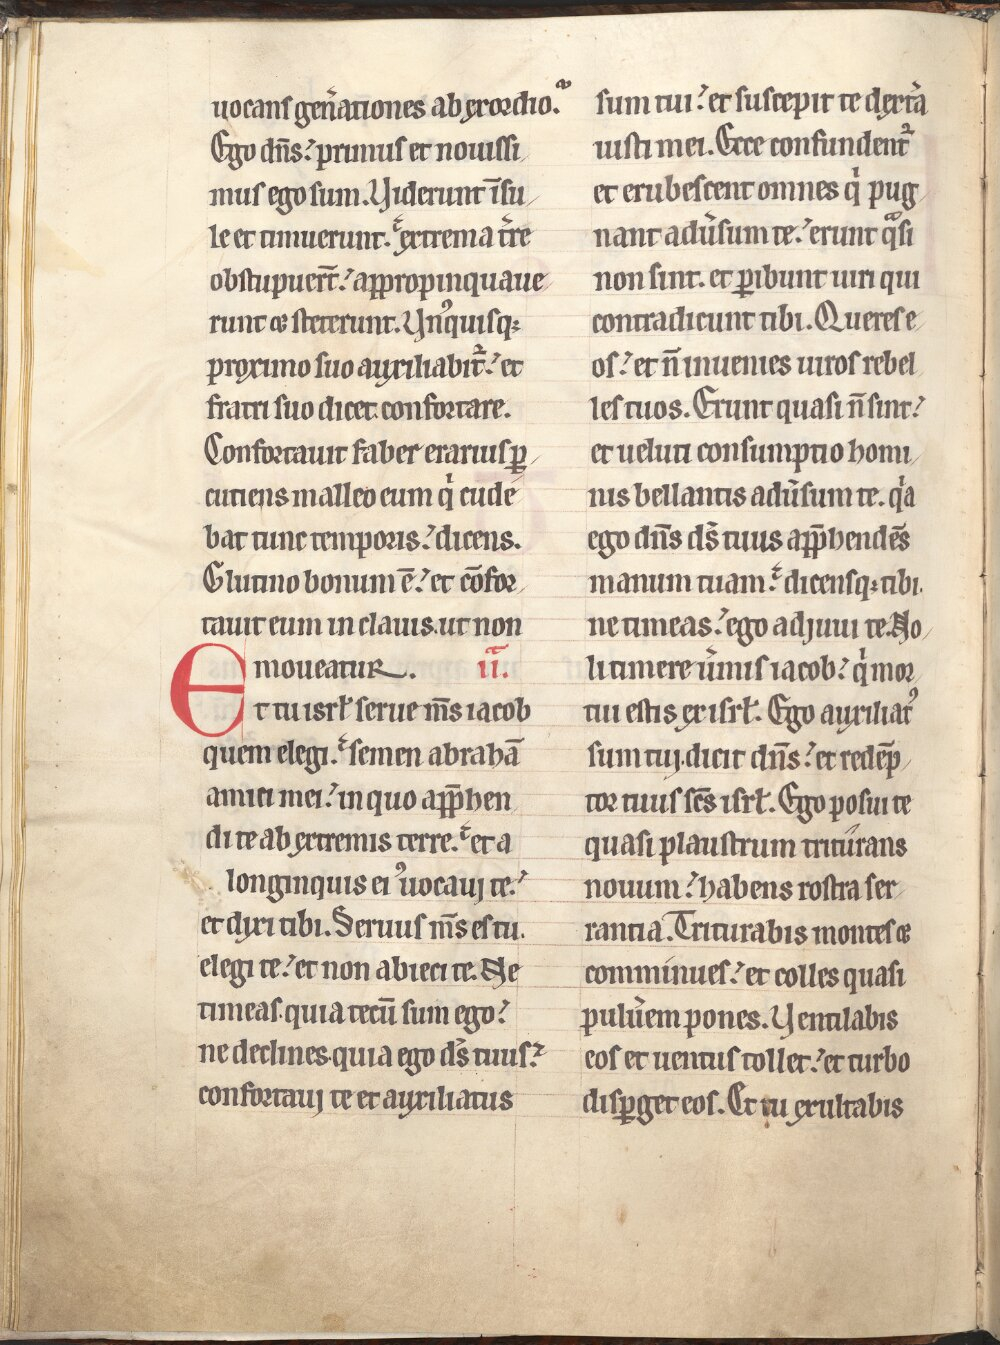 uocans gen̄ationes ab exordio.ˀ
Ego dn̄s.ˀ primus et nouissi
mus ego sum. Viderunt īsu
le et timuerunt. extrema t̄re
obstupuerṫ.ˀ appropinquaue
runt ⁊ steterunt. Vnꝰquisqꝫ
proximo suo auxiliabit᷑.ˀ et
fratri suo dicet. confortare.
Confortauit faber erarius ꝑ
cutiens malleo eum qͥ cude
bat tunc temporis.ˀ dicens.
Glutino bonum ē.ˀ et cōfor
tauit eum in clauis. ut non
moueatur. ii̅.
Et tu isrł serue m̄s iacob
quem elegi. semen abrahā
amici mei.ˀ in quo app̄hen
di te ab extremis terre. et a
longinquis eiꝰ uocaui te.ˀ
et dixi tibi. Seruus m̄s es tu.
elegi te.ˀ et non abieci te. Ne
timeas. quia tecū sum ego.ˀ
ne declines. quia ego ds̄ tuus.ˀ
confortaui te et auxiliatus
sum tui.ˀ et suscepit te dext̄a
iusti mei. Ecce confundent᷑
et erubescent omnes qͥ pug
nant adūsum te.ˀ erunt qͣsi
non sint. et ꝑibunt uiri qui
contradicunt tibi. Queres e
os.ˀ et n̄ inuenies uiros rebel
les tuos. Erunt quasi n̄ sint.ˀ
et ueluti consumptio homi
nis bellantis adūsum te. qͥa
ego dn̄s ds̄ tuus app̄hendēs
manum tuam. dicensqꝫ tibi.
ne timeas.ˀ ego adiuui te. No
li timere ūmis iacob.ˀ qͥ mor
tui estis ex isrł. Ego auxiliatꝰ
sum tui. dicit dn̄s.ˀ et redēp
tor tuus sc̄s isrł. Ego posui te
quasi plaustrum triturans
nouum.ˀ habens rostra ser
rantia. Triturabis montes ⁊
comminues.ˀ et colles quasi
puluēm pones. Ventilabis
eos et uentus tollet.ˀ et turbo
disꝑget eos. Et tu exultabis